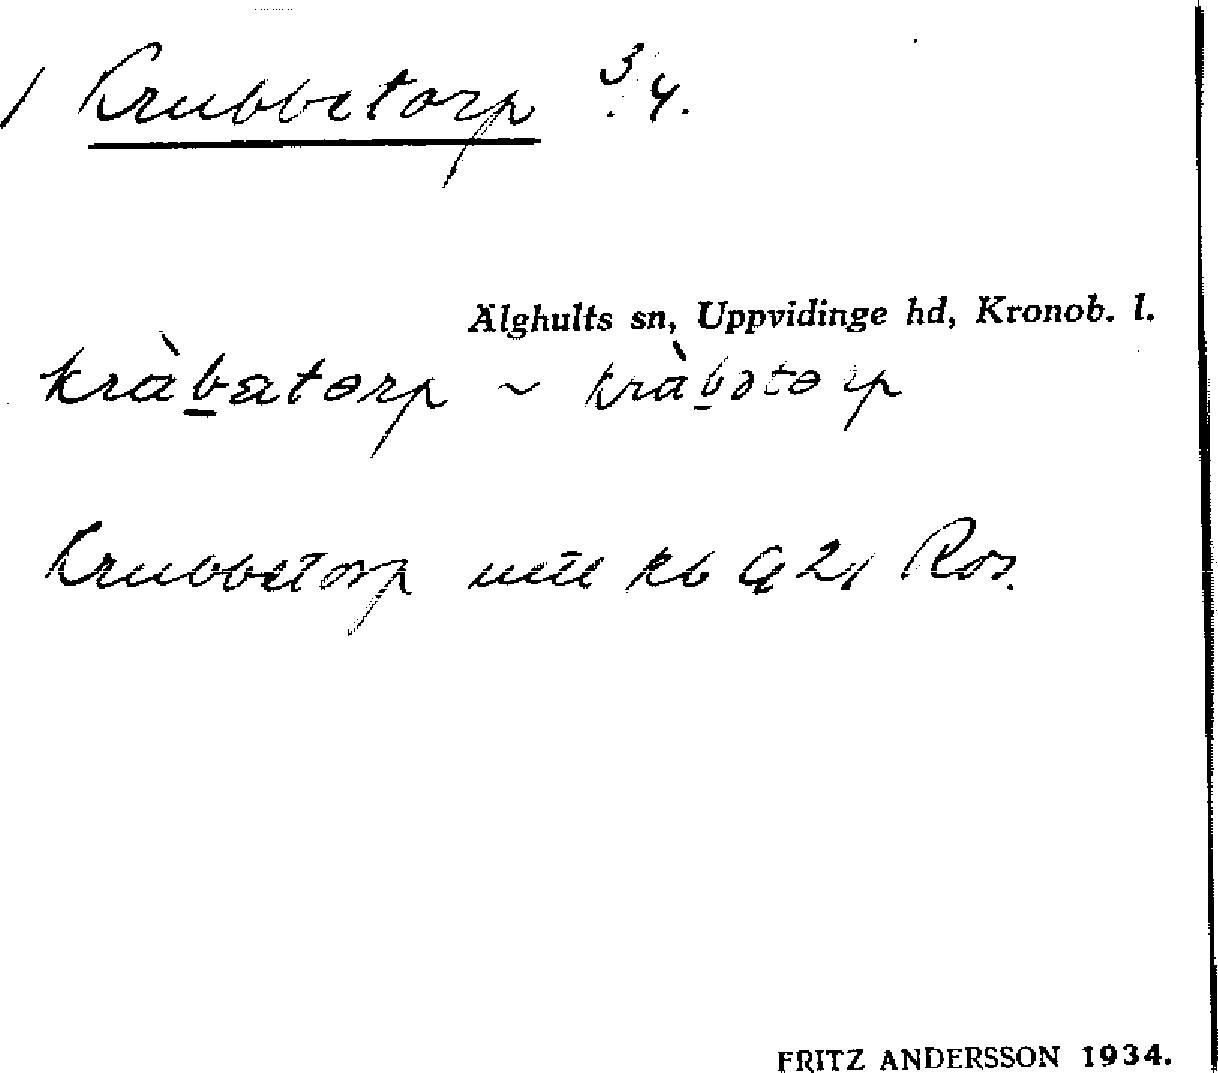 1 Krubbetorp 3/4.
Älghults sn, Uppvidinge hd, Kronob. l.
kràbatorp ~ kràbətorp
Krubbetorp
Ros.
FRITZ ANDERSSON 1934.